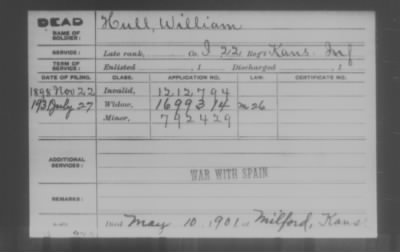 DEAD
NAME OF SOLDIER: Hull, William
SERVICE: Late rank, Co. I 22 Reg't Kans. Inf
TERM OF SERVICE: Enlisted , 1 Discharged , 1
DATE OF FILING. CLASS. APPLICATION NO. LAW. CERTIFICATE NO.
1898 Nov 22 Invalid, 1212794
193 July 27 Widow, 1699314 m 26
Minor, 792429
ADDITIONAL SERVICES:
WAR WITH SPAIN
REMARKS:
Died May 10 1901 at Milford, Kans.